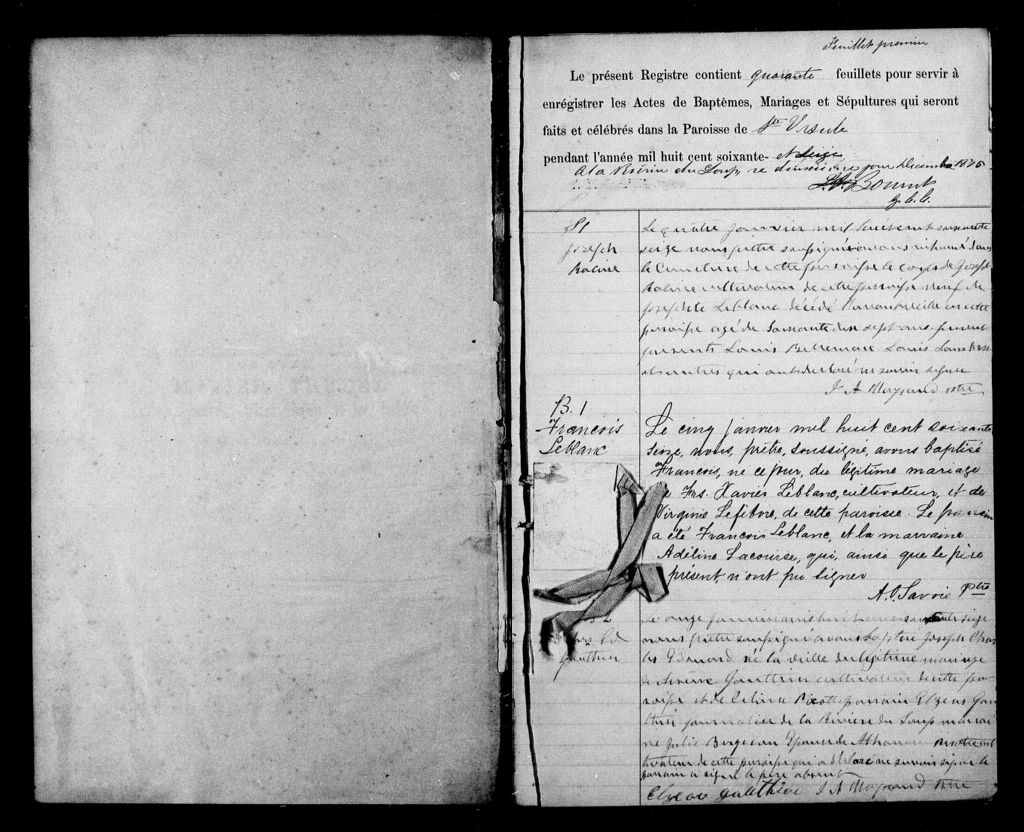 Feuillet premier
Le présent Registre contient quarante feuillets pour servir à
enrégistrer les Actes de Baptêmes, Mariages et Sépultures qui seront
faits et célébrés dans la Paroisse de Ste Ursule
pendant l'année mil huit cent soixante- et seize
A la Rivière du Loup ce jour Décembre 1875
G.C.C.
S1
Joseph
Racine
Le quatre janvier mil huit cent soixante
seize nous prêtre soussigné avons inhumé dans
le Cimetière de cette paroisse le corps de Joseph
Racine cultivateur de cette paroisse veuf de
Josephte Leblanc décédé en cette
paroisse agé de soixante dix sept ans. furent
présents Louis Bellemare Louis
qui ont déclaré ne savoir signer
J A Mayrand ptre
B. 1
Francois
Leblanc
Le cinq janvier mil huit cent soixante
seize, nous, prêtre, soussigné, avons baptisé
Francois, né ce jour, du légitime mariage
de Frs. Xavier Leblanc, cultivateur, et de
Virginie Lefebvre, de cette paroisse. Le parrain
a été Francois Leblanc, et la marraine
Adéline Lacourse, qui, ainsi que le père
présent, n'ont pu signer
A. O. Savoie Ptre
2
Ed
Gauthier
Le onze janvier mil huit cent soixante seize
nous prêtre soussigné avons baptisé Joseph Char
les Edouard né la veille du légitime mariage
de Gauthier cultivateur de cette pa
roisse et de Celina Picotte parrain Elzear Gau
thier journalier de la Rivière du Loup marrai
ne Julie Bergeron Epouse de Athanase Picotte cul
tivateur de cette paroisse qui a déclaré ne savoir signer le
parrain a signé le père absent
Elzear Gauthier J A Mayrand Ptre